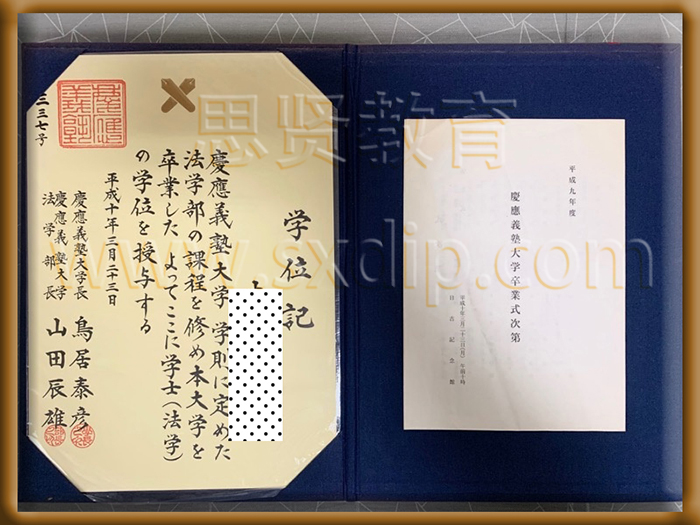 学位記
慶應義塾大学学則に定めた
法学部の課程を修め本大学を
卒業した よってここに学士(法学)
の学位を授与する
平成十年三月二十三日
慶應義塾大学長 鳥居泰彦
慶應義塾大学
法学部長 山田辰雄
三七号
平成九年度
慶應義塾大学卒業式次第
平成十年三月二十三日(月) 午前十時
日吉記念館
思贤教育
www.sxdip.com